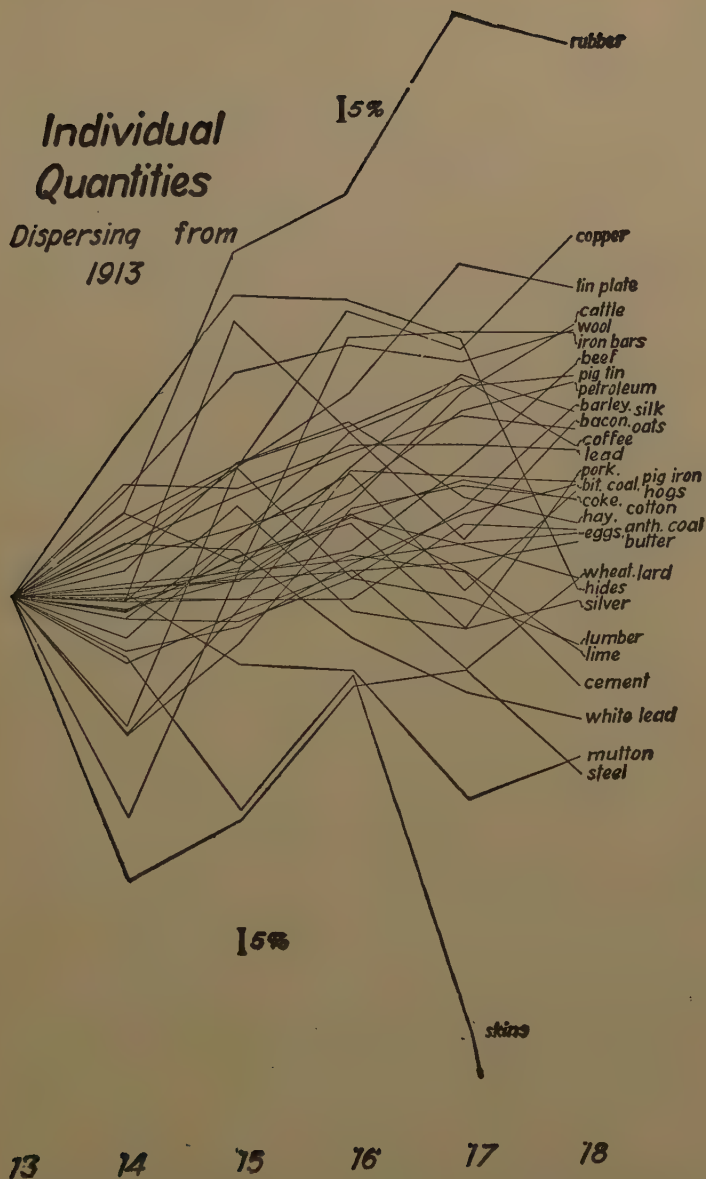 rubber
5%
Individual
Quantities
Dispersing from
1913
copper
tin plate
cattle
wool
iron bars
beef
pig tin
petroleum
barley. silk
bacon. oats
coffee
lead
pork. pig iron
bit. coal. hogs
coke. cotton
hay.
eggs. anth. coal
butter
wheat. lard
hides
silver
lumber
lime
cement
white lead
mutton
steel
5%
skins
13 '14 '15 '16 '17 '18